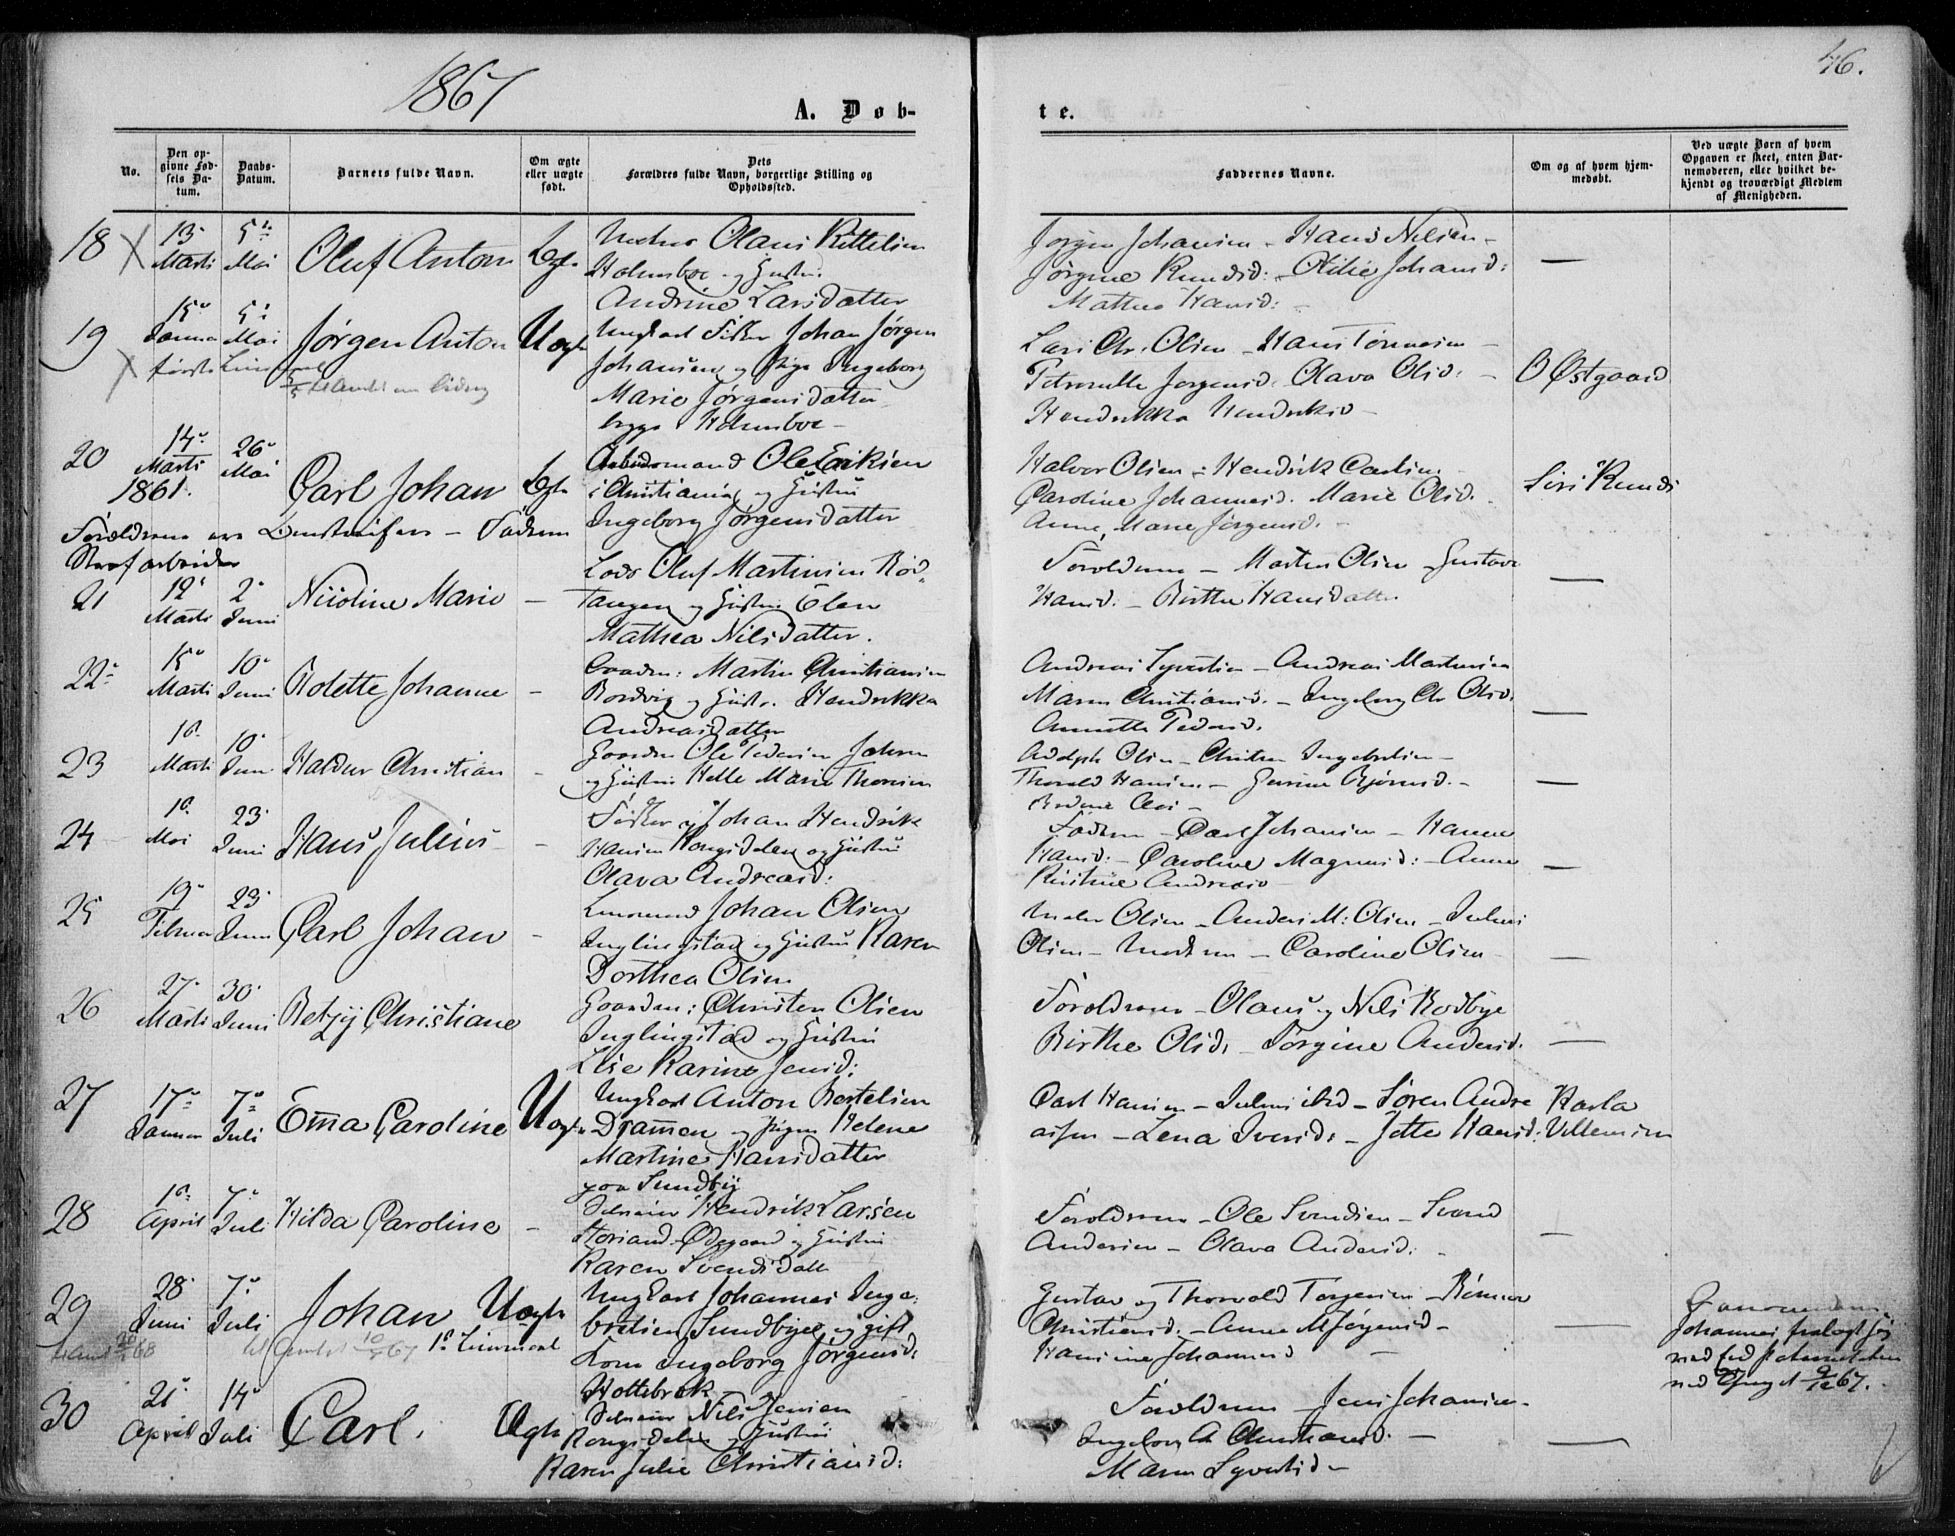 1867
46.
A. Døb-
te.
No.
Den op-
givne Fød-
sels Da-
tum.
Daabs-
Datum.
Barnets fulde Navn.
Om ægte
eller uægte
født.
Dets
Forældres fulde Navn, borgerlige Stilling og
Opholdssted.
Faddernes Navne.
Om og af hvem hjem-
medøbt.
Ved uægte Børn af hvem
Opgaven er skeet, enten Bar-
nemoderen, eller hvilket be-
kjendt og troværdigt Medlem
af Menigheden.
18
13
Marts
5
Mai
Oluf Anton
Olaus Kittelsen
Holmsboe og Hustru
Andrine Larsdatter
Jørgen Johansen - Hans Nilsen -
Jørgine Knudsd: - Otilie Johansd:
Mathea Hansd:
—
19
15
Januar
5
Mai
Jørgen Anton
Uægte
Ungkarl Fisker Johan Jørgen
Johansen og Pige Ingeborg
Marie Jørgensdatter
begge Holmsboe -
Lars Chr. Olsen - Hans Tønnesen -
Petronelle Jørgensd. Olava Olsd. -
Hendrikka Hendriksd -
O Østgaard
20
14
Marts
1861.
26
Mai
Carl Johan
Ægte
Arbeidsmand Ole Eriksen
i Christiania og Hustru
Ingeborg Jørgensdatter
Forældrene ere - Faderen
Strafarbeider
Halvor Olsen - Hendrik Carlsen -
Caroline Johannesd. Marie Olsd.
Anne Marie Jørgensd. -
Siri Knuds
21
12
Marts
2
Juni
Nicoline Marie
-
Lods Oluf Martinsen Rød-
tangen og Hustru Elen
Mathea Nilsdatter.
Forældrene - Morten Olsen - Gustava
Hansd: - Birthe Hansdatter
—
22
15
Marts
10
Juni
Bolette Johanne
-
Gaardm: Martin Christiansen
Bordvig og Hustr. Hendrikka
Andreasdatter
Andreas Syvertsen - Andreas Martinsen
Maren Christiansd. - Ingeborg Chr Olsd.
Annette Pedersd.
—
23
10
Marts
10
Juni
Haldur Christian
-
Gaardm Ole Pedersen
og Hustru Helle Marie Thoresen
Adolph Olsen - Christen Ingebretsen -
Thorvald Hansen - Gurine Bjørnsd. -
—
24
10
Mai
23
Juni
Hans Julius
-
Fisker Johan Hendrik
Hansen Kongsdelen og Hustru
Olava Andreasd:
Faderen - Carl Johansen - Hanna
Hansd: - Caroline Magnusd: - Anne
Kirstine Andreasd -
—
25
19
Februar
23
Juni
Carl Johan
-
Johan Olsen
Inglingstad og Hustru Karen
Dorthea Olsen
Olsen - Anders M: Olsen - Julius
Olsen - Moderen - Caroline Olsen
—
26
27
Marts
30
Juni
Betzy Christiane
Gaardm: Christen Olsen
Inglingstad og Hustru
Lise Karine Jensd:
Forældrene - Olaus og Nils Rodbye
Birthe Olsd. - Jørgine Andersd.
—
27
17
Januar
7
Juli
Em̄a Caroline
Uægte
Ungkarl Anton Bertelsen
Dram̄en og Pigen Helene
Martine Hansdatter
paa Sundby
Carl Hansen - Julius ibid - Søren Andre
asen - Lena Iversd: - Jette Hansd:
Karla
Villemsen
28
10
April
7
Juli
Hilda Caroline
-
Hendrik Larsen
Ødegaard og Hustru
Karen Svendsdatt
Forældrene - Ole Svendsen - Svend
Andersen - Olava Andersd:
—
29
28
Juni
7
Juli
Johan
Uægte
Ungkarl Johannes Inge-
bretsen Sundbye og gift
Kone Ingeborg Jørgensd:
Holtebrek
Gustav og Thorvald Torgersen -
Christiansd: - Anne M Jørgensd -
Hansine Johannesd -
—
Johannes fralagt sig
30
21
April
14
Juli
Carl.
Ægte
Nils Jensen
Kongsdelen og Hustru
Karen Julie Christiansd:
Forældrene - Jens Johansen -
Ingeborg A Christiansd. -
Maren Syvertsd -
—